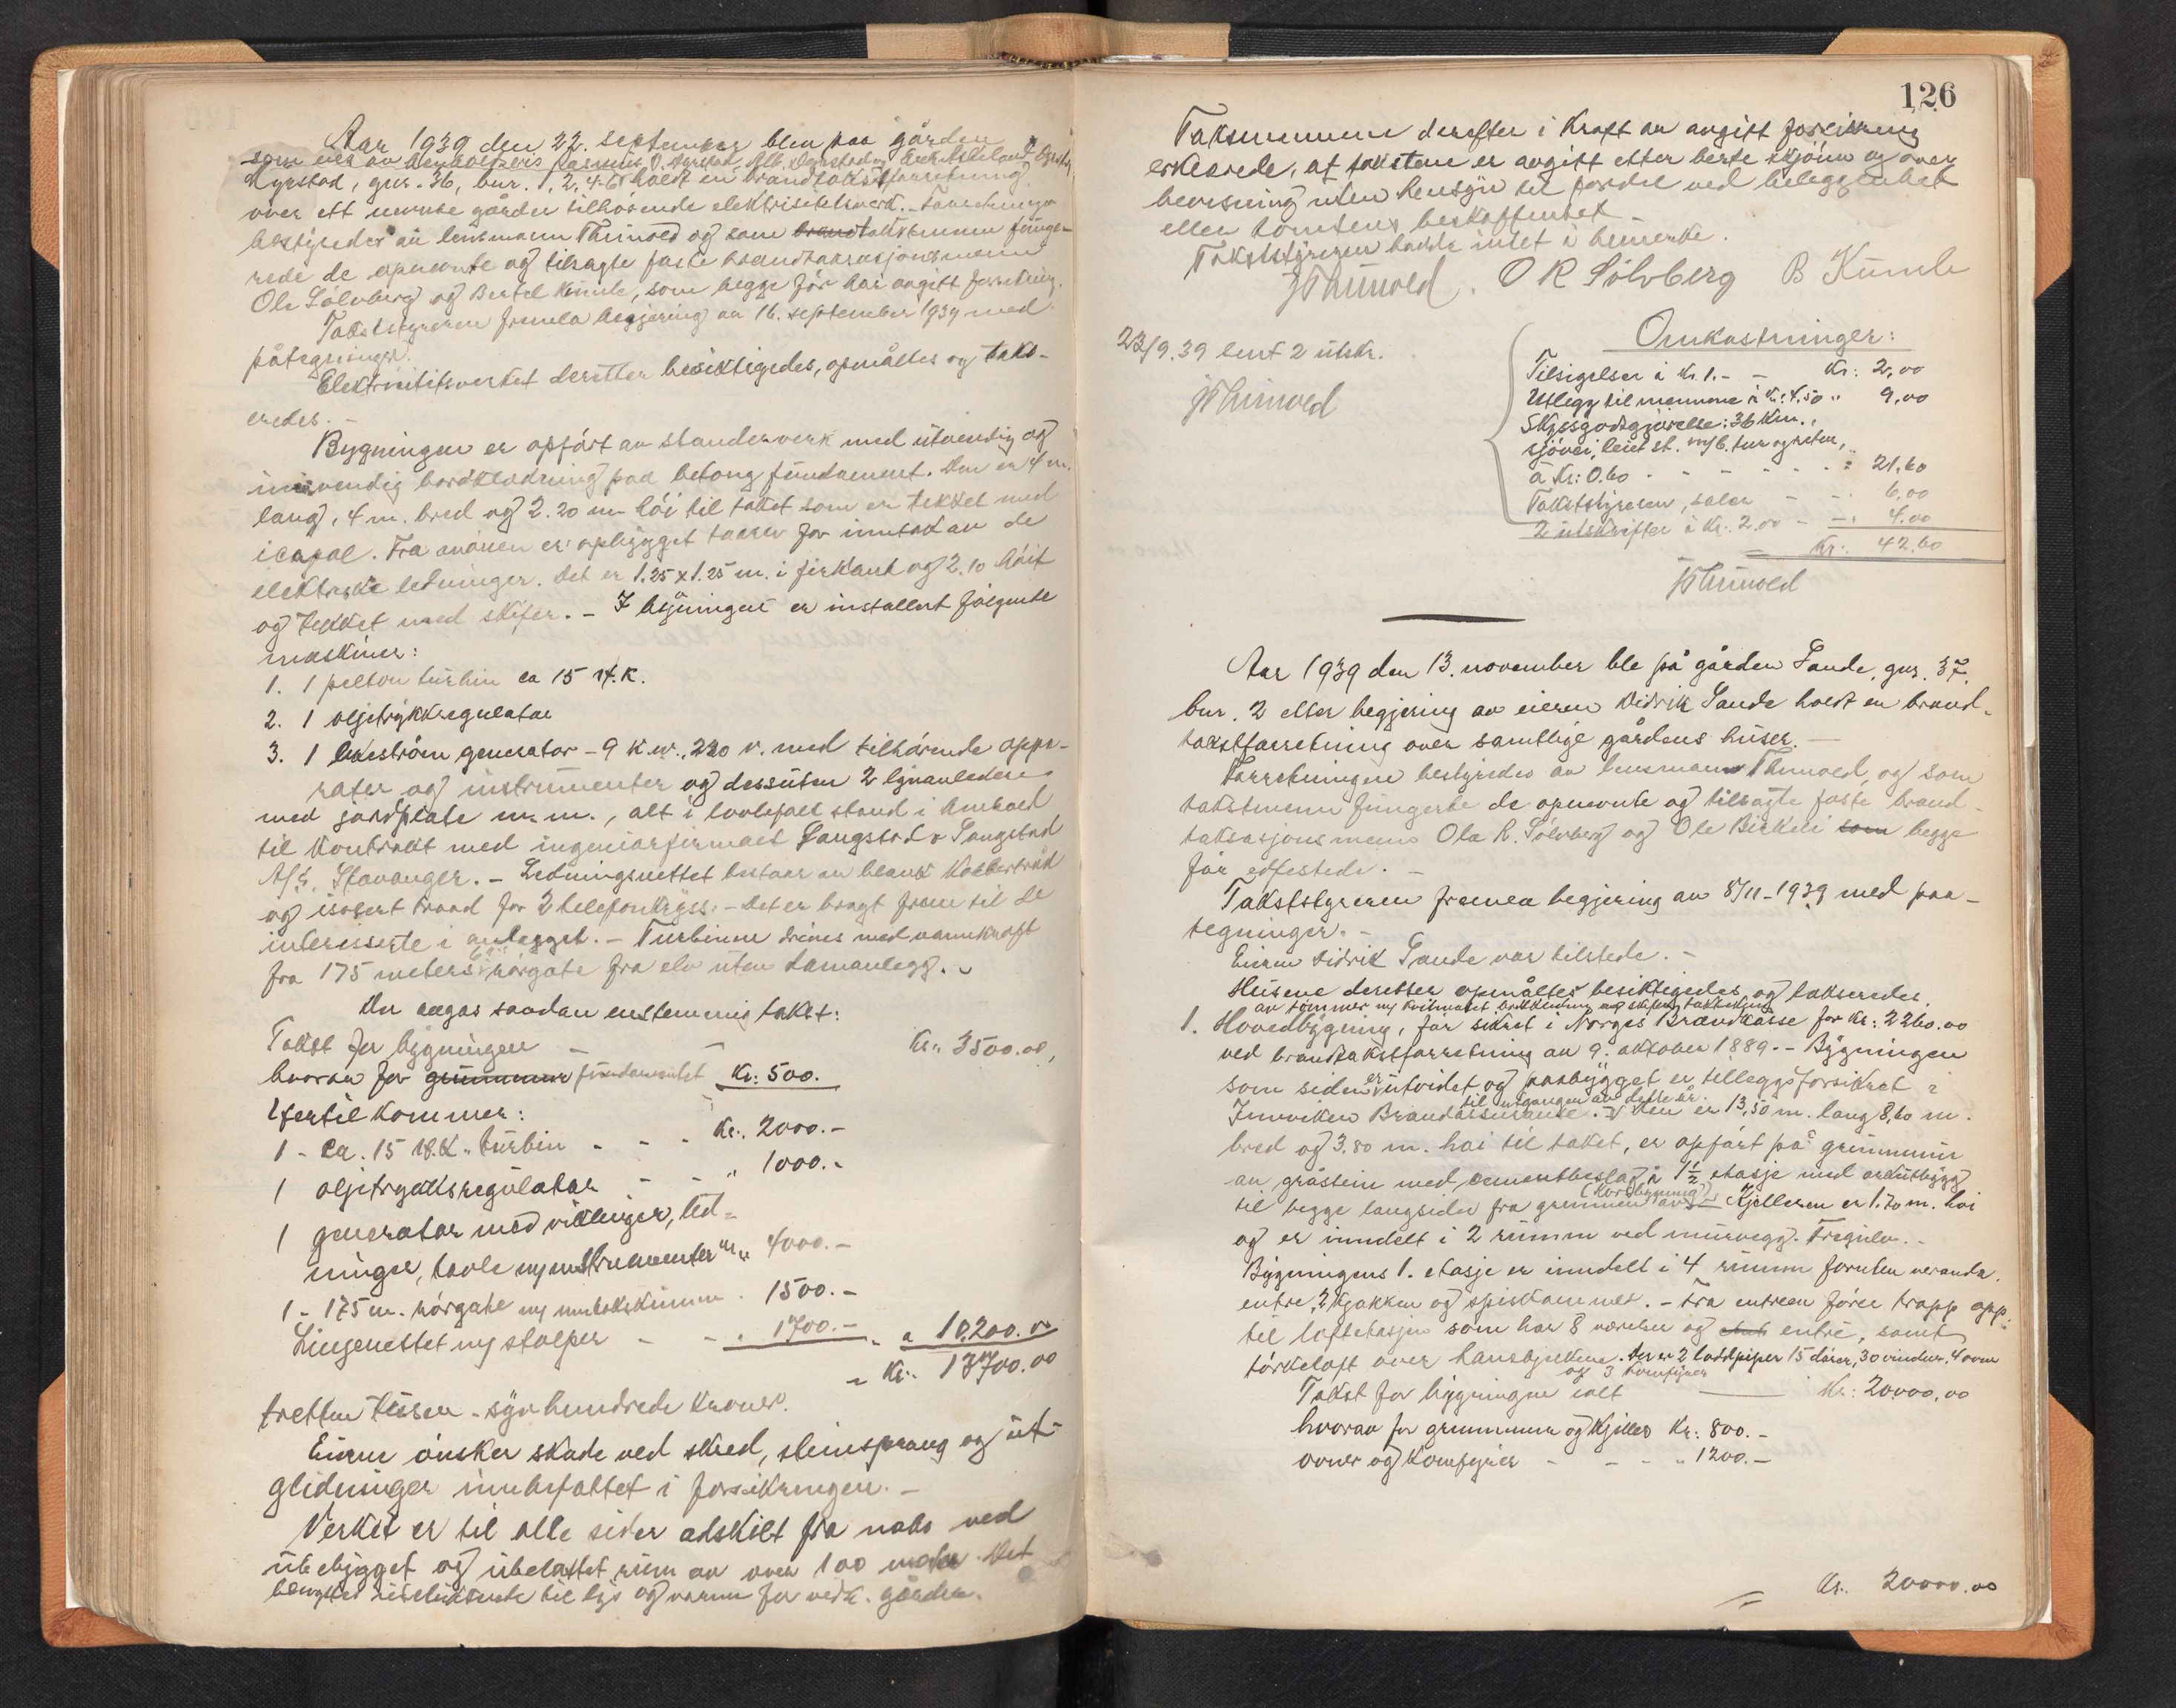 Aar 1939 den 22. september blev paa gården
Myrstad, gnr. 36, bnr. 1, 2, 4-6 holdt en brandtakstforretning
over ett nevnte gården tilhørende elektrisitetsverk. Forretningen
bestyredes av lensmann Thunold og som brand takstmenn funge-
rede de opnevnte og tilsagte faste brandtaxasjonsmenn
Ole Sølvberg og Bertel Kumle, som begge før har avgitt forsikring.
Takststyreren fremla begjæring av 16. september 1939 med
påtegninger.
Elektricitetsverket deretter besiktigedes, opmåltes og taks-
eredes. -
Bygningen er opført av standerverk med utvendig og
innvendig bordklædning paa betong fundament. Den er 4 m.
lang, 4 m. bred og 2.20 m høi til taket som er tekket med
icopal. Fra muren er opbygget taarn for inntak av de
elektriske ledninger. Det er 1.25 x 1.25 m. i firkant og 2.10 høit
og tekket med skifer. - I bygningen er installert følgende
maskiner:
1. 1 pelton turbin ca 15 H.K.
2. 1 oljetrykkregulator
3. 1 likestrøm generator - 9 k.w. 220 v. med tilhørende appa-
rater og instrumenter og dessuten 2 lynavledere
med jordplate m.m., alt i lovbefalt stand i henhold
til kontrakt med ingeniørfirmaet Langstad & Langstad
A/S, Stavanger. - Ledningsnettet bestaar av blank kobbertråd
og isolert traad for 2 telefonkryss. - Det er bragt frem til de
interesserte i anlegget. - Turbinen drives med vannkraft
fra 175 meters 6" rørgate fra elv uten damanlegg. -
Der avgas saadan enstemmig takst:
Takst for bygningen - - Kr. 3500.00,
hvorav for grunnmur fundamentet Kr: 500.
Hertil kommer:
1 - ca. 15 H.K. turbin - - - Kr. 2000.-
1 oljetrykksregulator - - " 1000.-
1 generator med viklinger, led-
ninger, tavle m/instrumenter " " 4000.-
1 - 175 m. rørgate m/ inntakskumme . 1500.-
Linjenettet m/stolper - - . 1700.- " " 10,200.00
" Kr. 13700.00
tretten tusen - syvhundrede kroner.
Eieren ønsker skade ved skred, steinsprang og ut-
glidninger innbefattet i forsikringen. -
Verket er til alle sider adskilt fra nabo ved
ubebygget og ubelastet rum av over 100 meter. Det
benyttes utelukkende til lys og varme for vedk. gården.
126
Taksmennene derefter i kraft av avgitt forsikring
erklærede, at taksten er avgitt etter beste skjønn og over
bevisning uten hensyn til fordel ved beliggenhet
eller tomtens beskaffenhet -
Takststyreren hadde intet å bemerke.
JThunold. O R Sølvberg B Kumle
23/9.39 sent 2 utskr.
JThunold
Omkostninger:
Tilsigelser à kr. 1.- - Kr: 2,00
Utlegg til mennene à Kr. 4.50 " 9,00
Skyssgodtgjørelse: 36 km.,
sjøvei, leiet st. m/b. tur og retur,
à Kr: 0.60 - - - - - : 21,60
Takststyreren, salær - - . 6,00
2 utskrifter à Kr. 2.00 - - : 4.00
= Kr: 42,60
JThunold
Aar 1939 den 13. november ble på gården Sande, gnr. 37.
bnr. 2 etter begjæring av eieren Didrik Sande holdt en brand-
takstforretning over samtlige gårdens huser. -
Forretningen bestyredes av lensmann Thunold, og som
takstmenn fungerte de opnevnte og tilsagte faste brand-
taksasjonsmenn Ola R. Sølvberg og Ole Birkeli som begge
før edfestede. -
Takststyreren fremla begjæring av 8/11-1939 med paa-
tegninger. -
Eieren Didrik Sande var tilstede. -
Husene deretter opmåltes besiktigedes og takseredes.
av tømmer m/ hvitmalet bordkledning og skifer taktekking
1. Hovedbygning, før sikret i Norges Brandkasse for Kr: 2260.00
ved brandtakstforretning av 9. oktober 1889. - Bygningen
som siden er utvidet og paabygget er tilleggsforsikret i
til utgangen av dette år.
Innviken Brandassurance. Den er 13,50 m. lang 8,60 m.
bred og 3.80 m. høi til taket, er opført på grunnmur
av gråstein med cementbeslag, à 1½ etasje med arkutbygg
(Korsbygning)
til begge langsider fra grunnen av. Kjelleren er 1.70 m. høi
og er inndelt i 2 rumm ved murvegg. Tregulv. -
Bygningens 1. etasje er inndelt i 4 rumm foruten veranda.
entre, 2 kjøkken og spiskammer. - Fra entreen fører trapp opp
til loftetasjen som har 8 værelser og entré, samt
tørkeloft over hanebjelkene. Der er 2 loddpiper 15 dører, 30 vinduer, 4 ovner
og 3 komfyrer
Takst for bygningen ialt Kr: 20000,00
hvorav for grunnmur og kjeller Kr: 800.-
ovner og komfyrer - - - " 1200.-
Kr. 20000.00